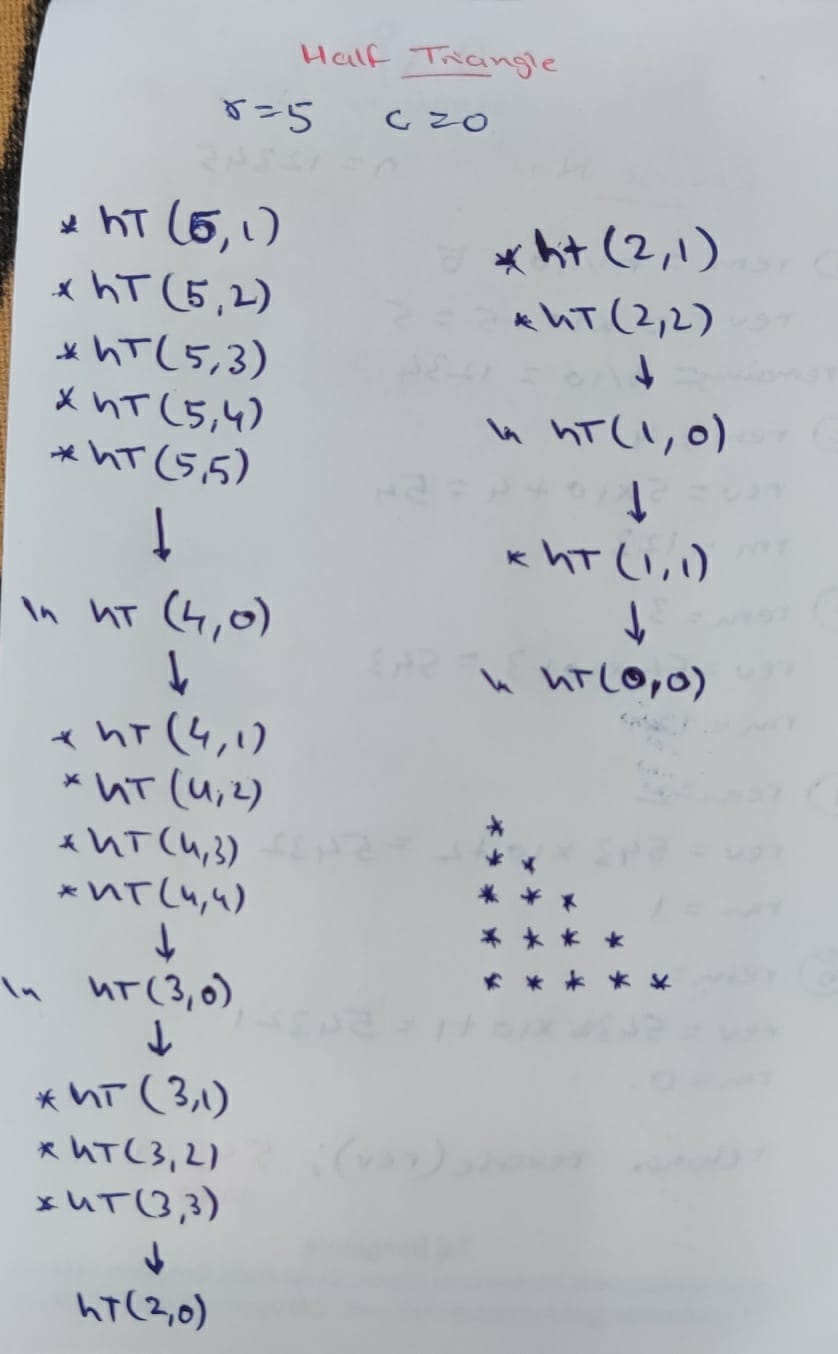 Half Triangle
r=5 c=0
* hT (5,1)
* hT (5,2)
* hT (5,3)
* hT (5,4)
* hT (5,5)
↓
ln hT (4,0)
↓
* hT (4,1)
* hT (4,2)
* hT (4,3)
* hT (4,4)
↓
ln hT (3,0)
↓
* hT (3,1)
* hT (3,2)
* hT (3,3)
↓
hT (2,0)
* ht (2,1)
* hT (2,2)
↓
ln hT (1,0)
↓
* hT (1,1)
↓
ln hT (0,0)
*
* *
* * *
* * * *
* * * * *